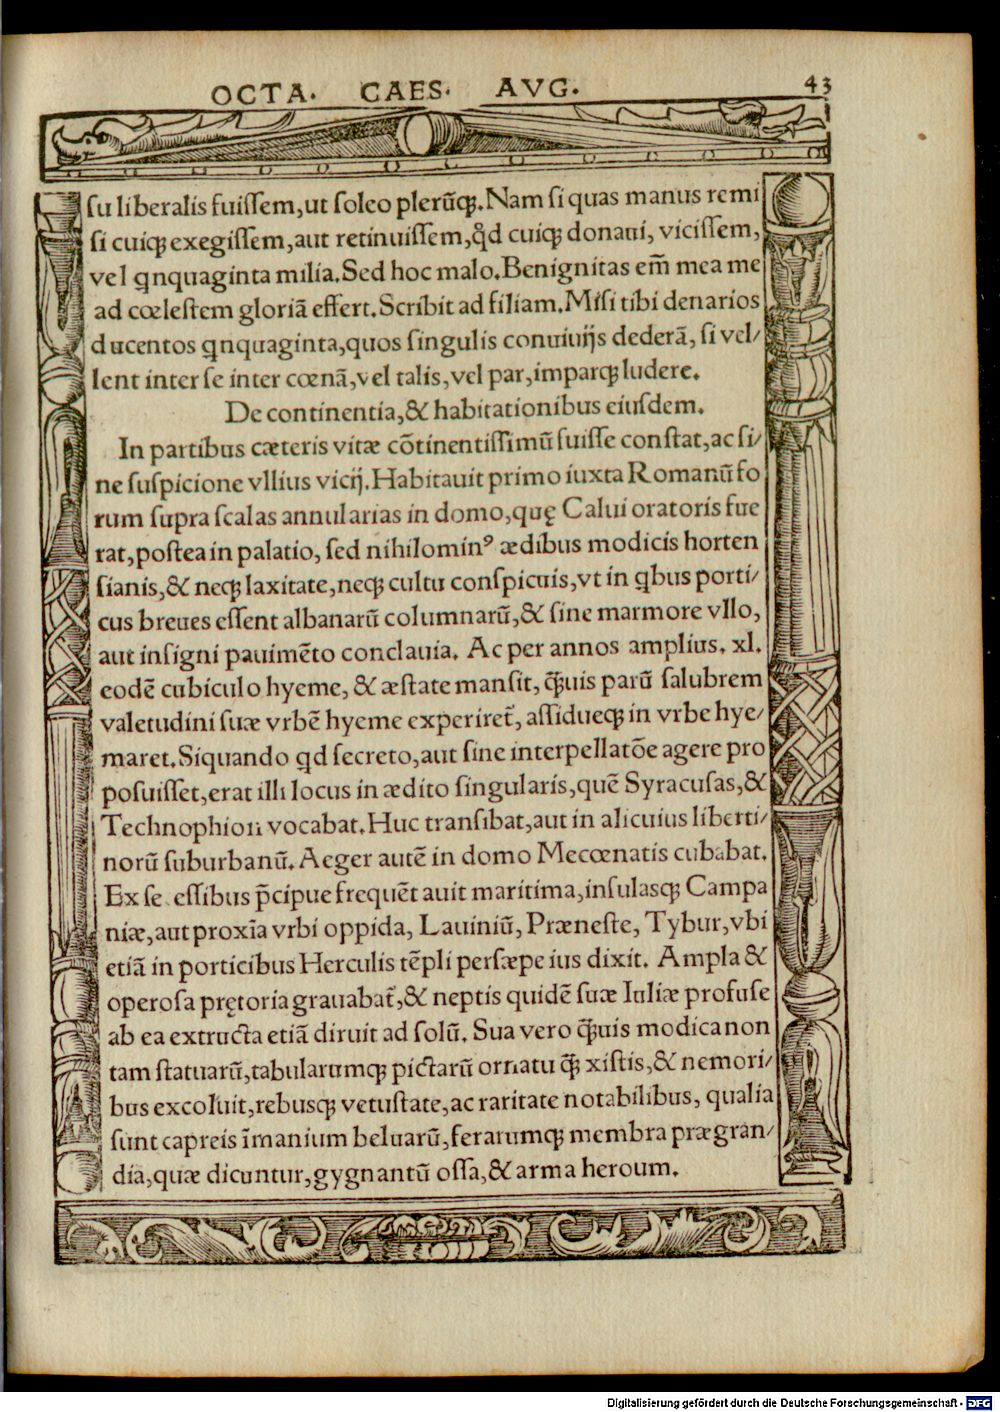 OCTA. CAES. AVG. 43
su liberalis fuissem,ut soleo plerũq̃.Nam si quas manus remi
si cuiq̃ exegissem,aut retinuissem,q̊d cuiq̃ donaui, vicissem,
vel qnquaginta milia.Sed hoc malo.Benignitas em̃ mea me
ad cœlestem gloriã effert.Scribit ad filiam.Misi tibi denarios
ducentos qnquaginta,quos singulis conuiuijs dederã, si vel/
lent inter se inter cœnã,vel talis,vel par,imparq̃ ludere.
De continentia,& habitationibus eiusdem.
In partibus cæteris vitæ cõtinentissimũ fuisse constat,ac si/
ne suspicione vllius vicij.Habitauit primo iuxta Romanũ fo
rum supra scalas annularias in domo,quę Calui oratoris fue
rat,postea in palatio, sed nihilominꝰ ædibus modicis horten
sianis,& neq̃ laxitate,neq̃ cultu conspicuis,vt in qbus porti/
cus breues essent albanarũ columnarũ,& sine marmore vllo,
aut insigni pauimẽto conclauia. Ac per annos amplius. xl.
eodẽ cubiculo hyeme, & æstate mansit, q̃uis parũ salubrem
valetudini suæ vrbẽ hyeme experiret̃, assidueq̃ in vrbe hye/
maret.Siquando qd secreto,aut sine interpellatõe agere pro
posuisset,erat illi locus in ædito singularis,quẽ Syracusas,&
Technophion vocabat.Huc transibat,aut in alicuius liberti/
norũ suburbanũ. Aeger autẽ in domo Mecœnatis cubabat.
Ex se essibus p̃cipue frequẽtauit maritima,insulasq̃ Campa
niæ,aut proxĩa vrbi oppida, Lauiniũ, Præneste, Tybur,vbi
etiã in porticibus Herculis tẽpli persæpe ius dixit. Ampla &
operosa prętoria grauabat̃,& neptis quidẽ suæ Iuliæ profuse
ab ea extructa etiã diruit ad solũ. Sua vero q̃uis modica non
tam statuarũ,tabularumq̃ pictarũ ornatu q̃ xistis,& nemori/
bus excoluit,rebusq̃ vetustate,ac raritate notabilibus, qualia
sunt capreis ĩmanium beluarũ,ferarumq̃ membra prægran/
dia,quæ dicuntur,gygnantũ ossa,& arma heroum.
Digitalisierung gefördert durch die Deutsche Forschungsgemeinschaft - DFG